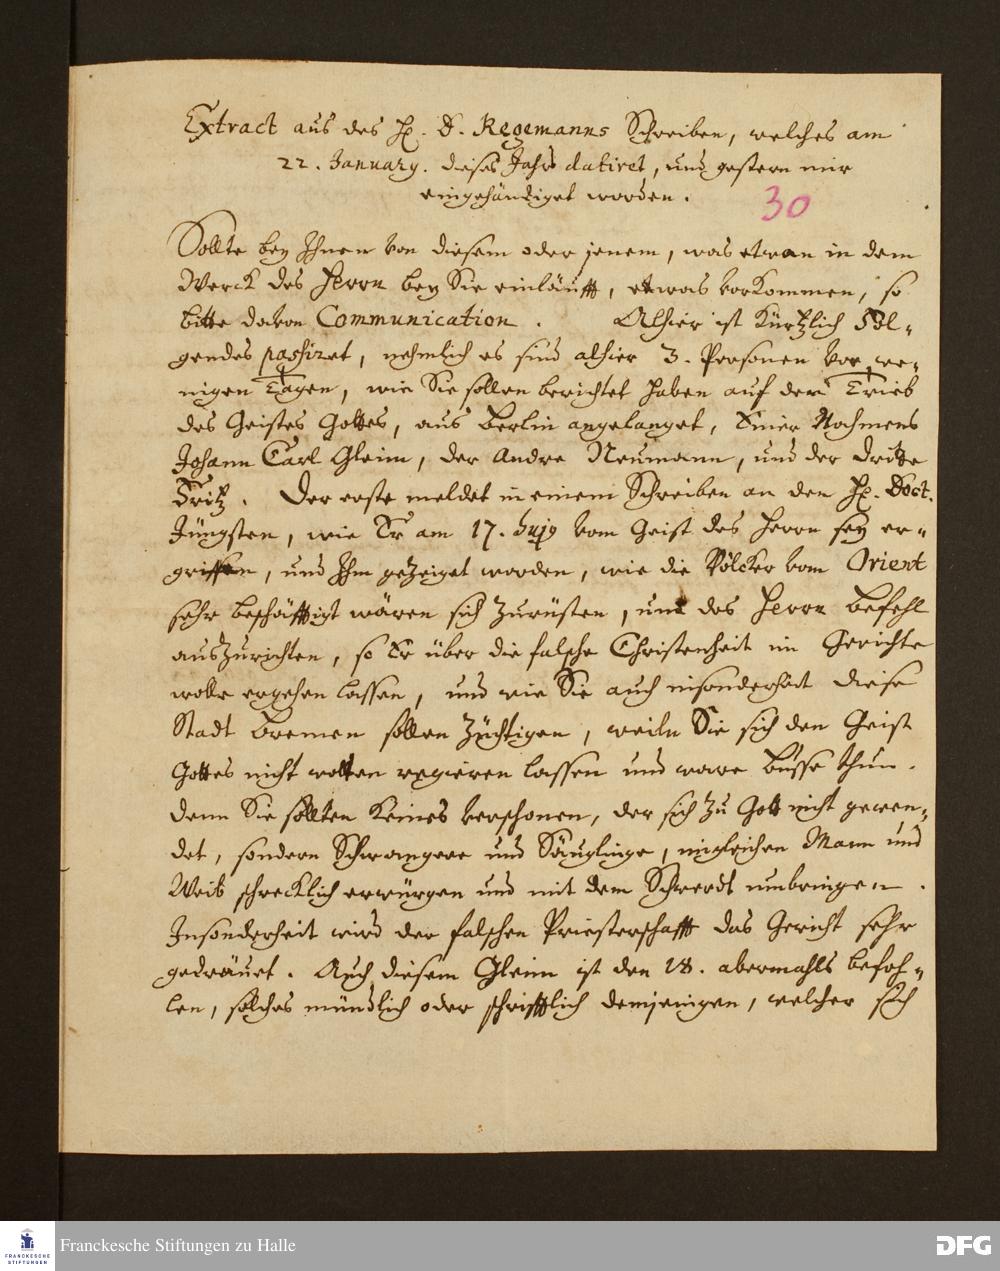 Extract aus des H. D. Regemanns Schreiben, welches am
22. January. dieses Jahrs datiret, und gestern mir
eingehändiget worden.
30
Sollte bey Ihnen von diesem oder jenem, was etwan in dem
Werck des Herrn bey Sie einläufft, etwas vorkommen, so
bitte davon Communication. Alhier ist kürtzlich Fol-
gendes passiret, nehmlich es sind alhier 3. Personen vor we-
nigen Tagen, wie Sie sollen berichtet haben auf den Trieb
des Geistes Gottes, aus Berlin angelanget, Einer Nahmens
Johann Carl Gleim, der Andre Neumann, und der dritte
Fritz. Der erste meldet in einem Schreiben an den H. Doct.
Jüngsten, wie Er am 17. hujg vom Geist des Herrn sey er-
griffen, und Ihm gezeiget worden, wie die Völcker vom Orient
sehr beschäfftigt wären sich zurüsten, und des Herrn Befehl
auszurichten, so Er über die falsche Christenheit im Gerichte
wolle ergehen lassen, und wie Sie auch insonderheit diese
Stadt Bremen sollen züchtigen, weiln Sie sich den Geist
Gottes nicht wolten regieren lassen und ware Busse thun.
denn Sie sollten keines verschonen, der sich zu Gott nicht gewen-
det, sondern Schwangere und Säuglinge, ingleichen Mann und
Weib schrecklich erwürgen und mit dem Schwerdt umbringen.
Insonderheit wird der falschen Priesterschafft das Gericht sehr
gedräuet. Auch diesem Gleim ist den 18. abermahls befoh-
len, solches mündlich oder schrifftlich demjenigen, welcher sich
FRANCKESCHE
STIFTUNGEN
Franckesche Stiftungen zu Halle
DFG